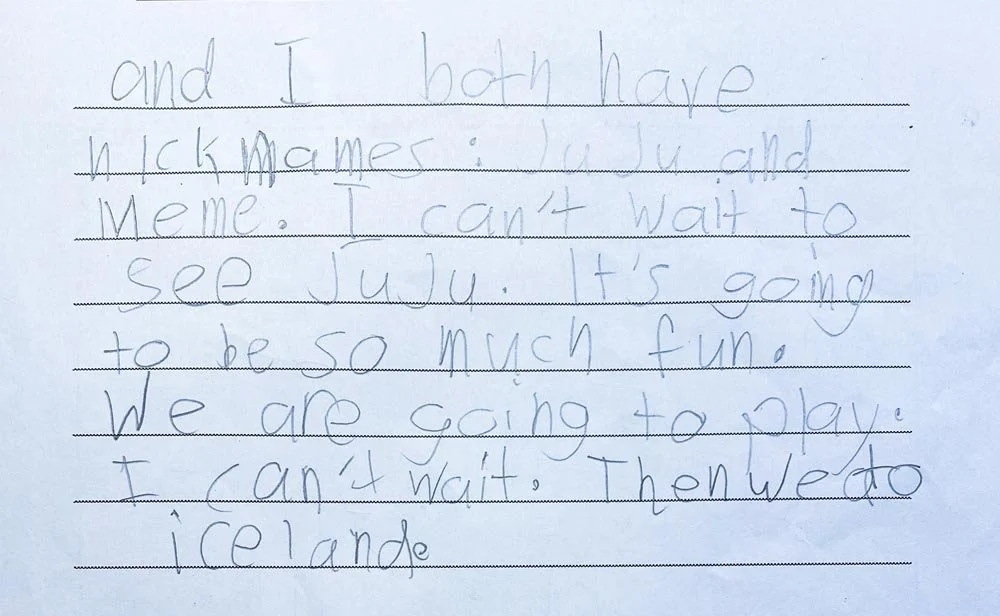 and I both have
nickmames: JuJu and
Meme. I can't wait to
see JuJu. It's going
to be so much fun.
We are going to play.
I can't wait. Then we do
iceland.